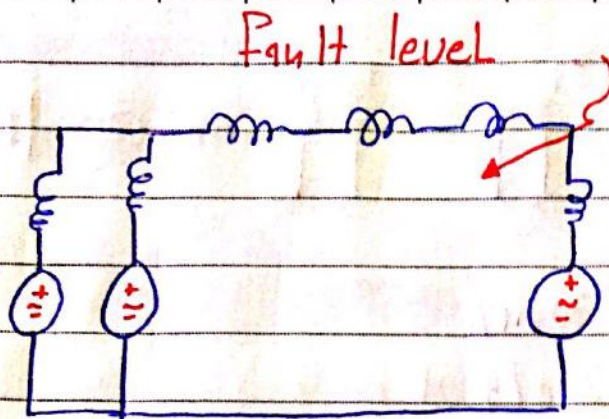 Fault level